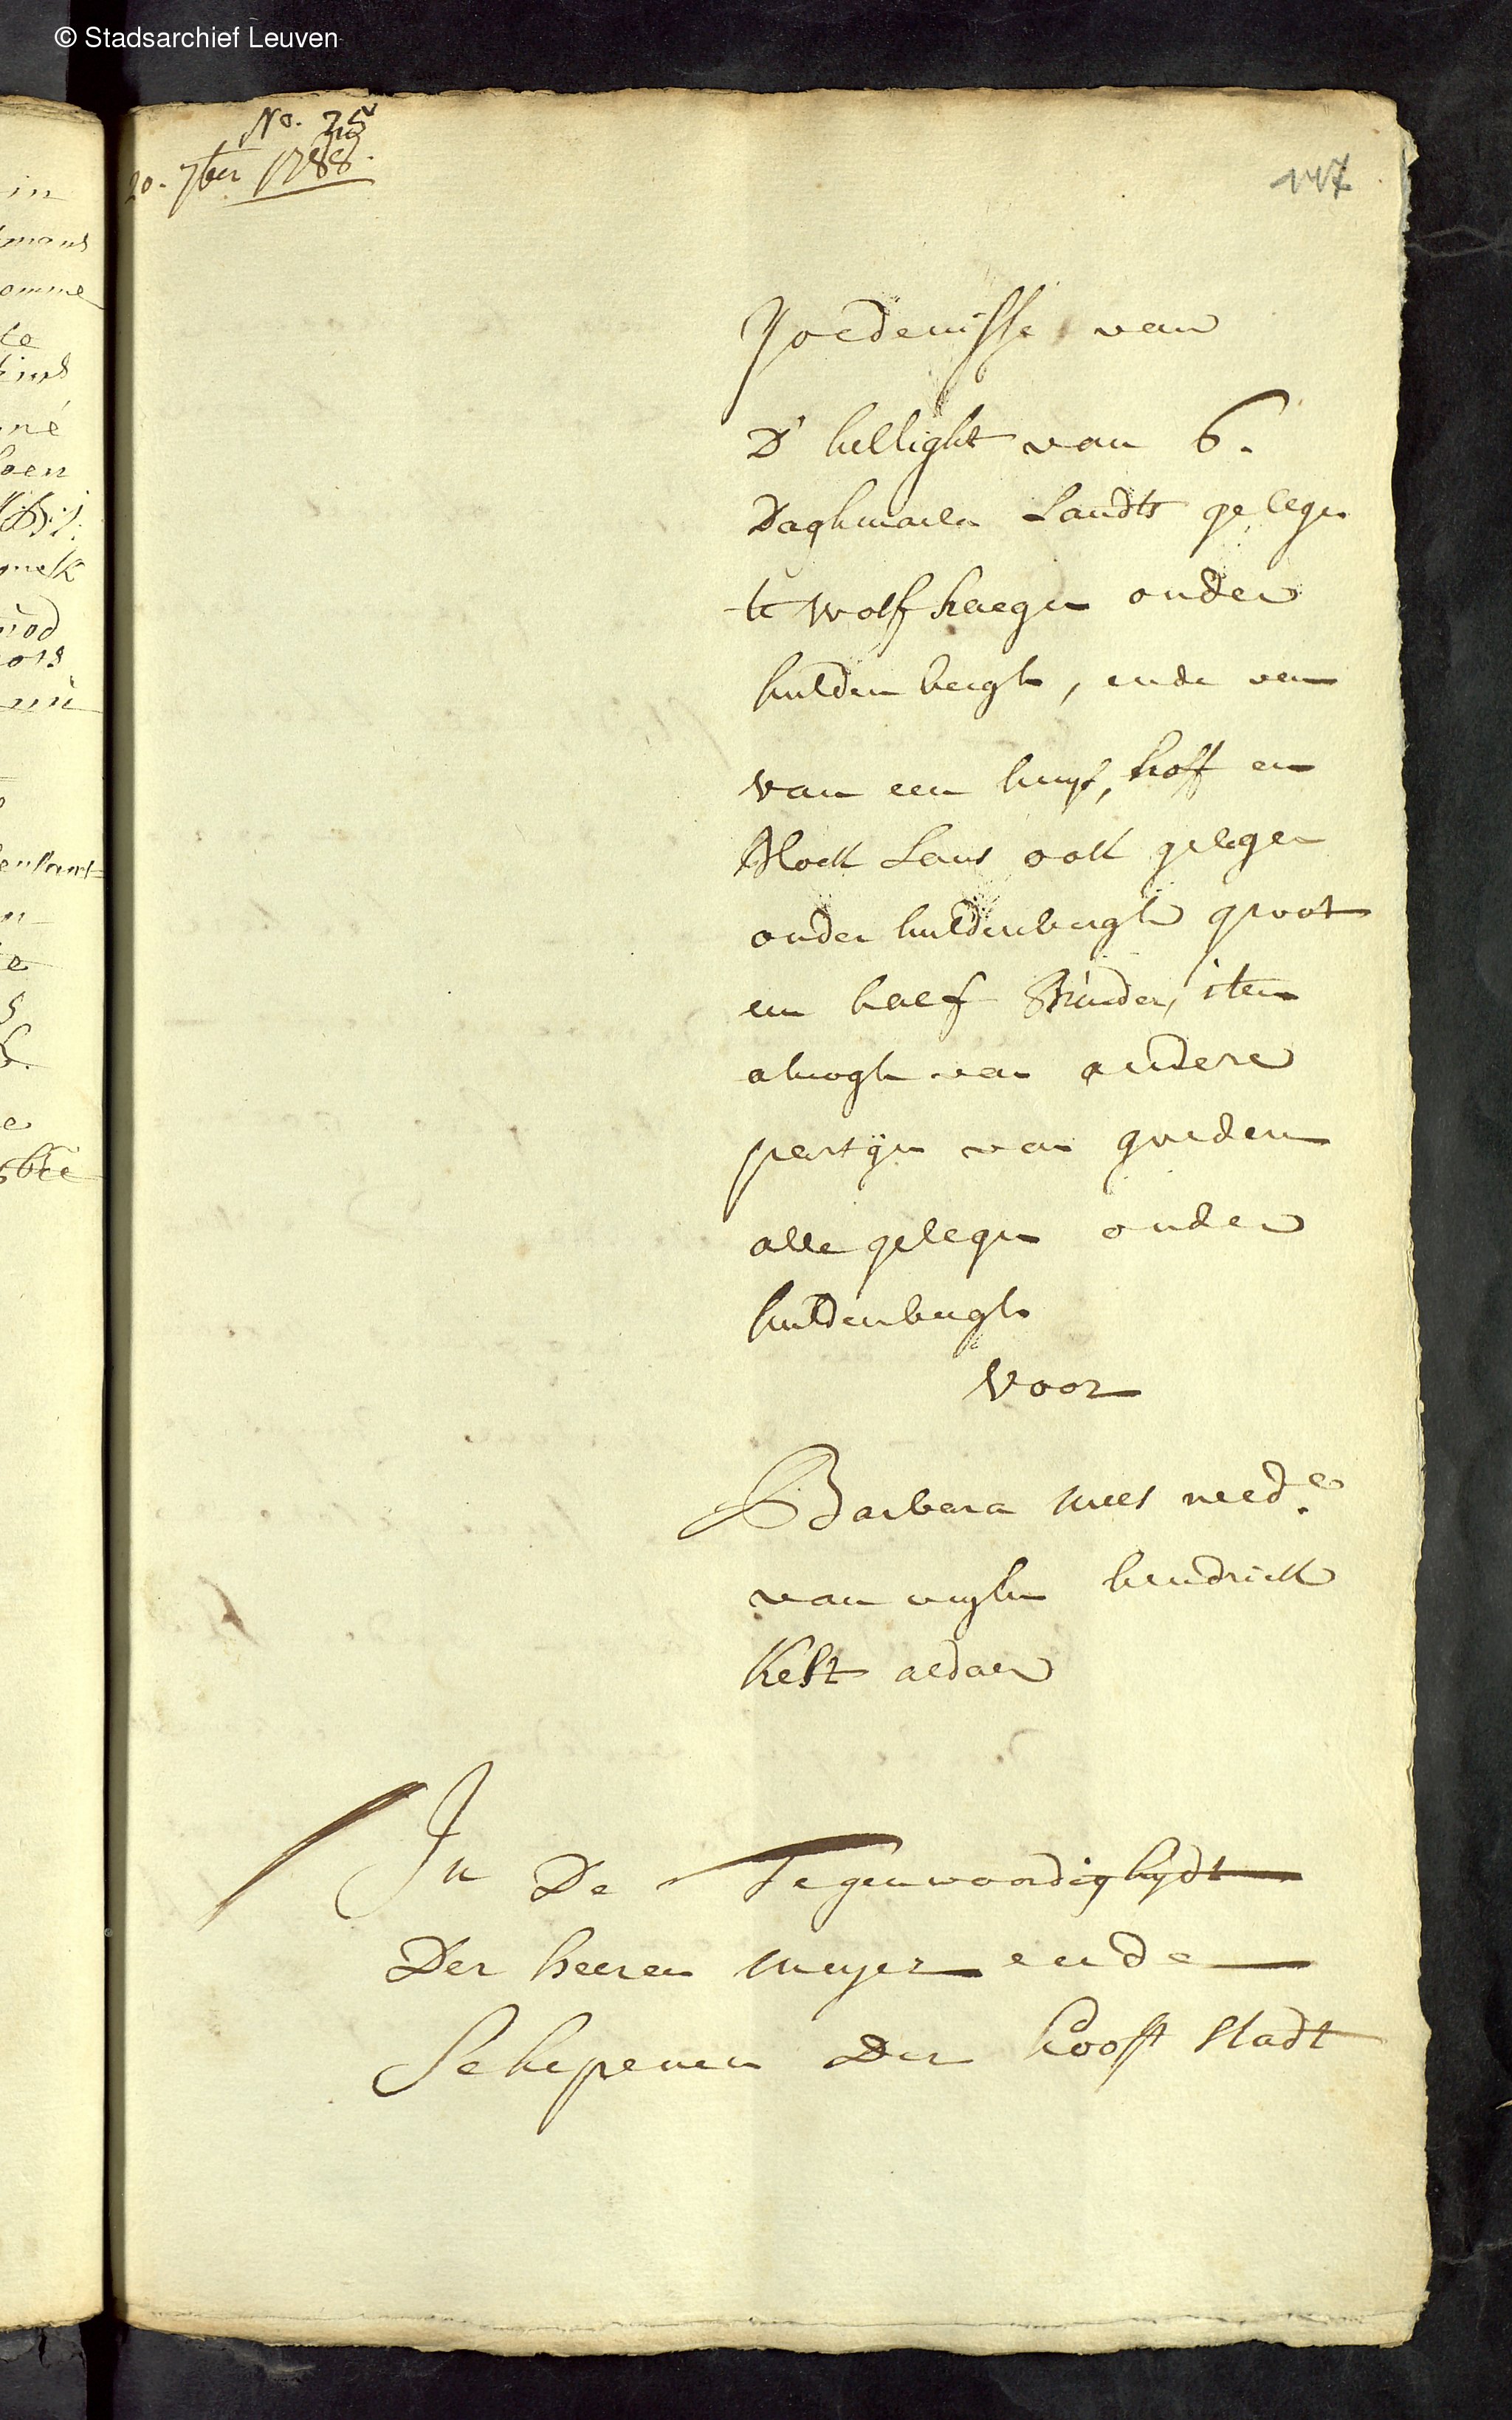 © Stadsarchief Leuven
in
omme
te
né
oen
melk
iod
ors
e
No.
20. 7ber 1788.
147
Goedenisse van
D' hellight van 6.
Daghmaelen Landts gelegen
te Wolfshaegen onder
huldenbergh, ende van
van een huys, hoff en
Block Lans oock gelegen
onder huldenbergh groot
een half Bunder, item
alnogh van andere
partijen van goederen
alle gelegen onder
huldenbergh
Voor
Barbara mees weed.e
van wylen hendrick
Kest aldaer
In De Tegenwoordighydt
Der heeren meyer ende
Schepenen Der hooft Stadt